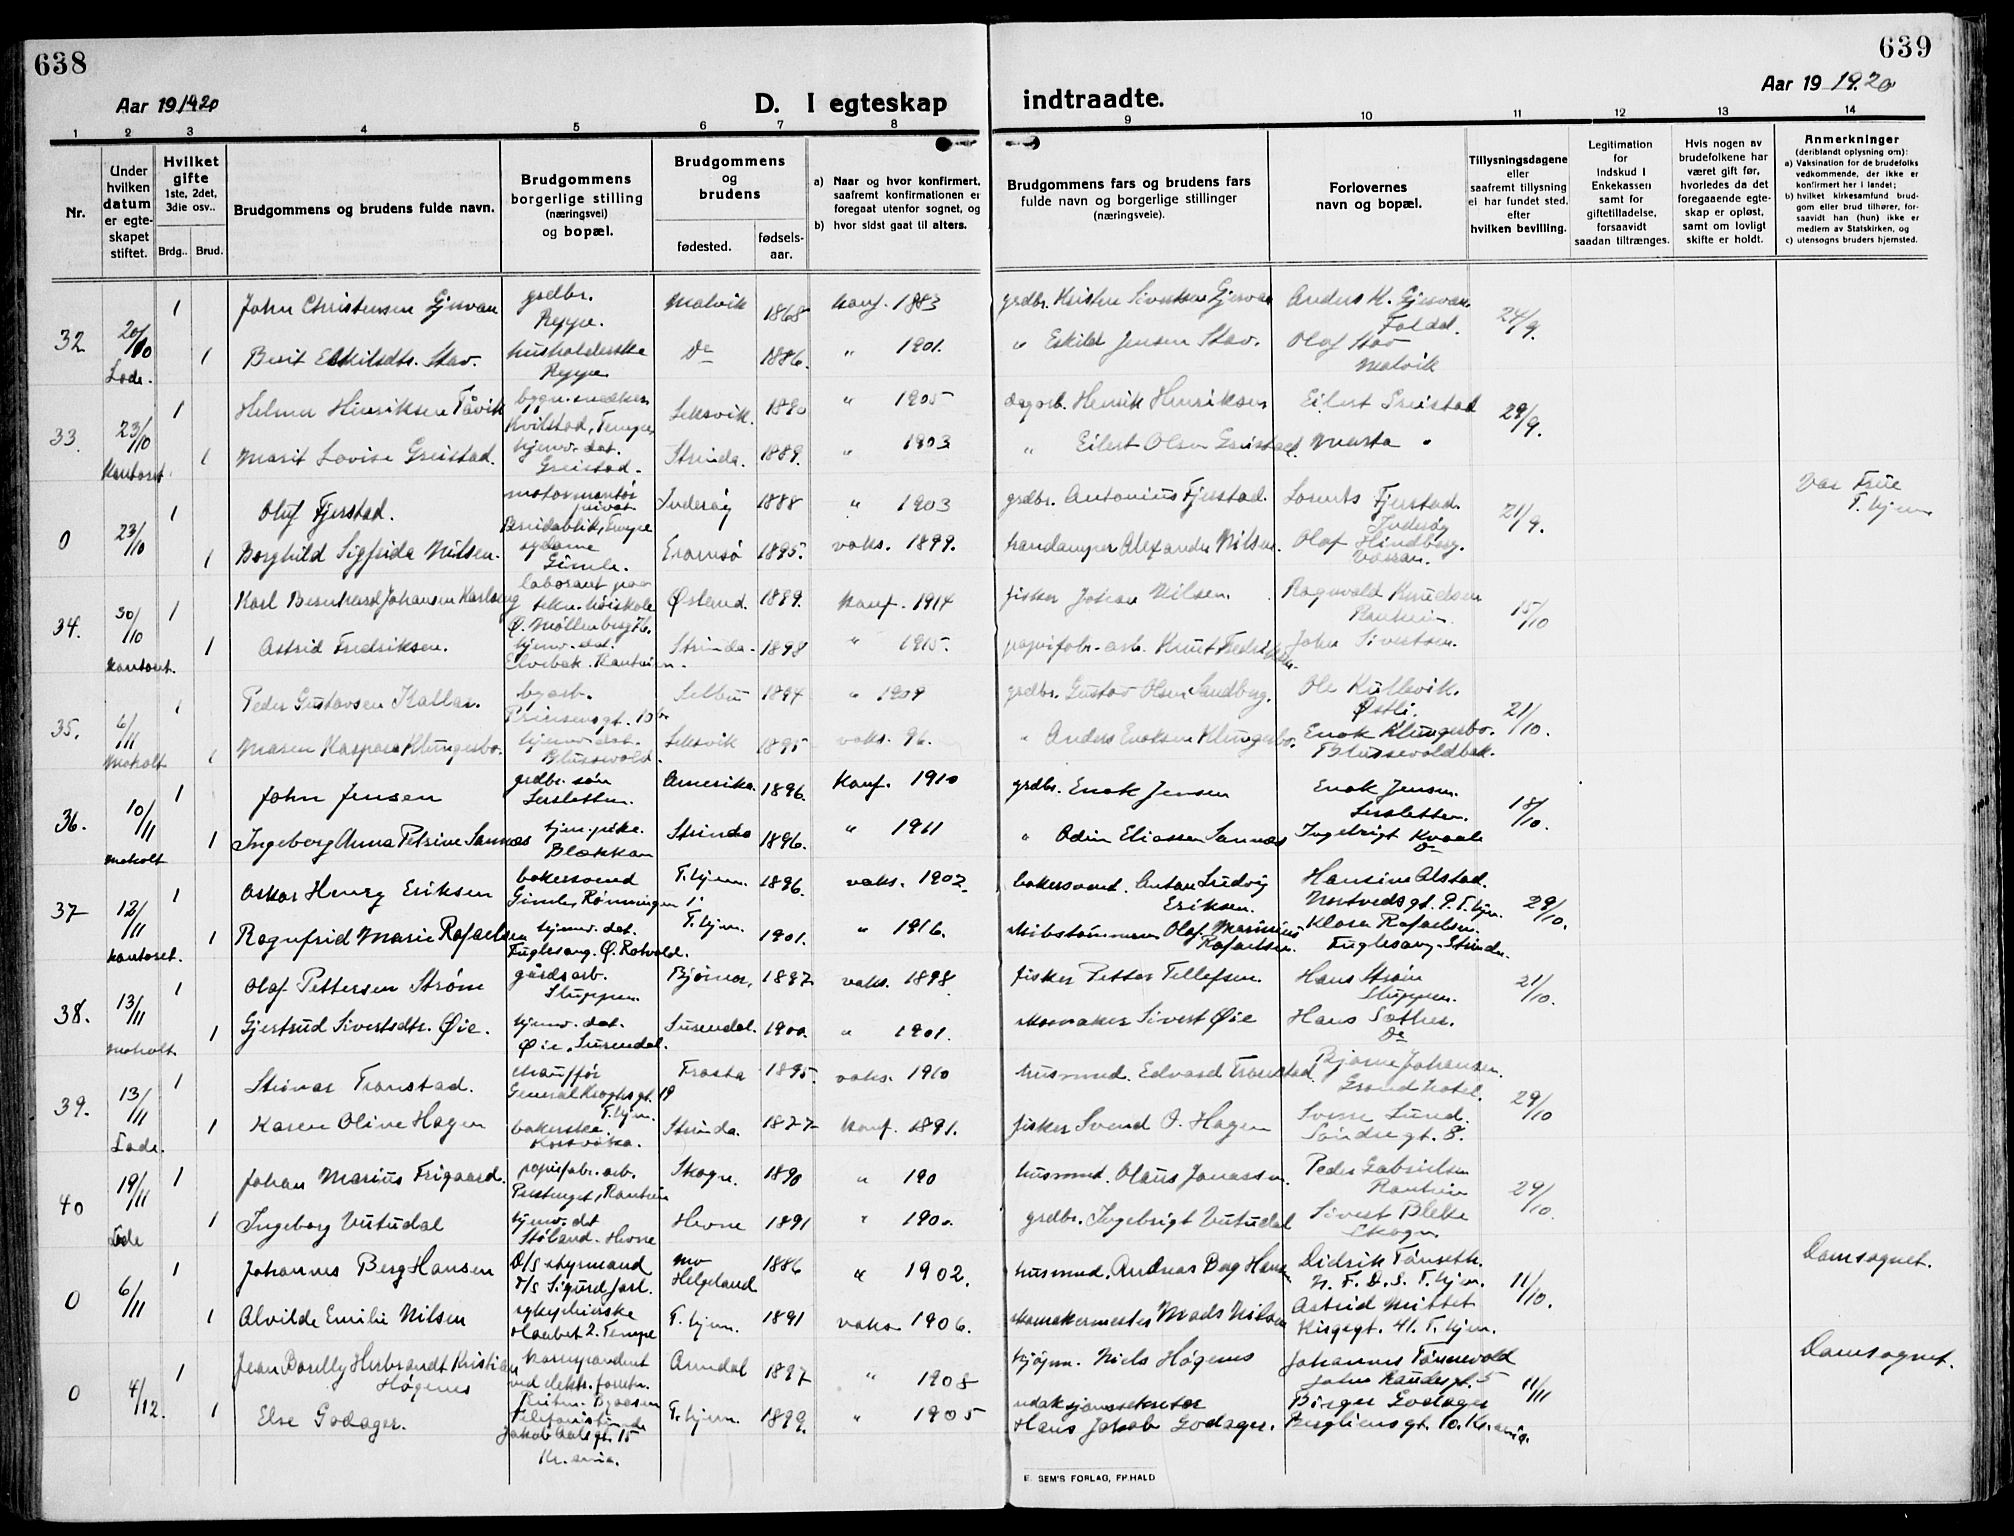 638
639
Aar 19 1920
Aar 19 1920
D. I egteskap indtraadte.
1 2 3 4 5 6 7 8 9 10 11 12 13 14
Nr.
Under hvilken datum er egte-skapet stiftet.
Hvilket gifte
1ste, 2det, 3die osv..
Brdg..
Brud.
Brudgommens og brudens fulde navn.
Brudgommens borgerlige stilling (næringsvei) og bopæl.
Brudgommens og brudens
fødested.
fødsels-aar.
a) Naar og hvor konfirmert, saafremt konfirmationen er foregaat utenfor sognet, og
b) hvor sidst gaat til alters.
Brudgommens fars og brudens fars fulde navn og borgerlige stillinger (næringsveie).
Forlovernes navn og bopæl.
Tillysningsdagene eller saafremt tillysning ei har fundet sted, efter hvilken bevilling.
Legitimation for Indskud I Enkekassen samt for giftetilladelse, forsaavidt saadan tiltrænges.
Hvis nogen av brudefolkene har været gift før, hvorledes da det foregaaende egte-skap er opløst, samt om lovligt skifte er holdt.
Anmerkninger
(deriblandt oplysning om):
a) Vaksination for de brudefolks vedkommende, der ikke er konfirmert her i landet;
b) hvilket kirkesamfund brud-gom eller brud tilhører, for-saavidt han (hun) ikke er medlem av Statskirken, og
c) utensogns bruders hjemsted.
32 20/10 Lade.
1 John Christensen Gjervan grdbr. Reppe. Malvik 1868 konf. 1883 grdbr. Kristen Sivertsen Gjervan Anders K. Gjervan Foldal. 24/9.
1 Berit Eskilsdtr. Stav. husholderske Reppe Do 1886. " 1901. " Eskild Jensen Stav. Olaf Stav Malvik
33. 23/10 kontoret
1 Helmer Hinriksen Tåvik bygn. snedker Kvilstad, Tempe, Leksvik. 1890 " 1905 Henrik Henriksen Eilert Greistad 29/9.
1 Marit Lovise Greistad. hjemv. dat. Greistad. Strinda. 1889. " 1903 " Eilert Olsen Greistad. Marta "
0 23/10
1 Oluf Fjerstad. motormontør privat Inderøy 1888 " 1903 grdbr. Antonius Fjerstad. Lorents Fjerstad. Inderøy 21/9. Vor Frue T.hjem
1 Borghild Sigfrida Nilsen. sydame Gimle. Tromsø 1895. vaks. 1899. Alexander Nilsen. Olaf Hindberg.
34. 30/10 kontoret.
1 Karl Bernhard Johansen Karlsberg laborant paa tekn. høiskole Ø. Møllenberg 76. 1889. konf. 1914 fisker Johan Nilsen. Ragnvald Knudsen Ranheim. 15/10
1 Astrid Fredriksen. hjemv. dat. Elvebak. Ranheim. Strinda. 1898 " 1915. papirfabr. arb. Knut Fredriksen. John Sivertsen.
35. 6/11 Moholt
1 Peder Gustavsen Kallar. byarb. Prinsensgt. 10b Selbu 1894 " 1909 grdbr. Gustav Olsen Sandberg. Ole Kullevik. Østli. 21/10.
1 Maren Kaspara Klungerbo. hjemv. dat. Blussevold. Leksvik 1895 vaks. 96. " Anders Enoksen Klungerbo. Enok Klungerbo. Blussevoldbak.
36. 10/11 Moholt
1 John Jensen grdbr. søn Lersletten. Amerika. 1896. konf. 1910 grdbr. Enok Jensen Enok Jensen. Lersletten. 18/10.
1 Ingeborg Anna Petrine Sannæs tjen. pike. Blækkan Strinda 1896. " 1911 " Odin Eliassen Sannæs Ingebrigt Kvaale Do
37 12/11 kontoret.
1 Oskar Henry Eriksen bakersvend Gimle, Rønningen 1' T.hjem. 1896. vaks. 1902. bakersvend. Anton Ludvig Eriksen. Hansine Alstad. T.hjem. 29/10.
1 Ragnfrid Marie Rafaelsen hjemv. dat. Fuglesang. Ø. Rotvold. T.hjem. 1901. " 1916. skibstømmerm. Olaf Marinius Rafaelsen. Klara Rafaelsen. Fuglesang. Strinda.
38. 13/11 Moholt
1 Olaf Pettersen Strøm gårdsarb. Sluppen. Bjørnør, 1897 vaks. 1898. fisker Petter Tellefsen. Hans Strøm Sluppen. 21/10.
1 Gjertrud Sivertsdtr. Øie. hjemv. dat. Øie, Surendal. Surendal. 1900. " 1901. skomaker Sivert Øie Hans Sæther. Do
39. 13/11 Lade.
1 Steinar Tronstad. chauffør General Kroghsgt. 19 T.hjem. Frosta 1895. vaks. 1910 husmand. Edvard Tronstad Bjarne Johansen. Grand hotel. 29/10
1 Karen Oline Hagen bakerske. Korsvika. Strinda. 1877 konf. 1891. fisker Svend O. Hagen Sverre Lund. Søndre gt. 8.
40 19/11 Lade
1 Johan Marius Frigaard. papirfabr. arb. Ranheim Skogn. 1890 " 190 husmand. Olaus Jonassen. Peder Gabrielsen Ranheim 29/10.
1 Ingeborg Vutudal hjemv. dat Støland. Hevne Hevne 1891 " 1900. grdbr. Ingebrigt Vutudal Sivert Bleke Skogn.
0 6/11
1 Johannes Berg Hansen D/S styrmand D/S Sigurd Jarl. Mo Helgeland 1886 " 1902. husmand. Andreas Berg Hansen Didrik Tønseth N. F. D. S. T.hjem. 11/10. Domsognet.
1 Alvilde Emilie Nilsen sykepleierske Tempe T.hjem. 1891 vaks. 1906. skomakermester Mads Nilsen Astrid Mittet Kirgegt. 41. T.hjem.
0 4/12.
1 Jean Borelly Herbrandt Kristian Høgenes korrespondent ved elektr. forretn. Arendal 1897 " 1908 kjøpm. Niels Høgenes Johannes Tønnevold 11/11 Domsognet.
1 Else Godager. Telefonistinde Jakob Aalsgt. 15 Kr.ania. T.hjem. 1899. " 1905 redaksjonssekretær Hans Jakob Godager. Birger Godager Bergliensgt. 10. Kr.ania.
E. SEM'S FORLAG, FR.HALD